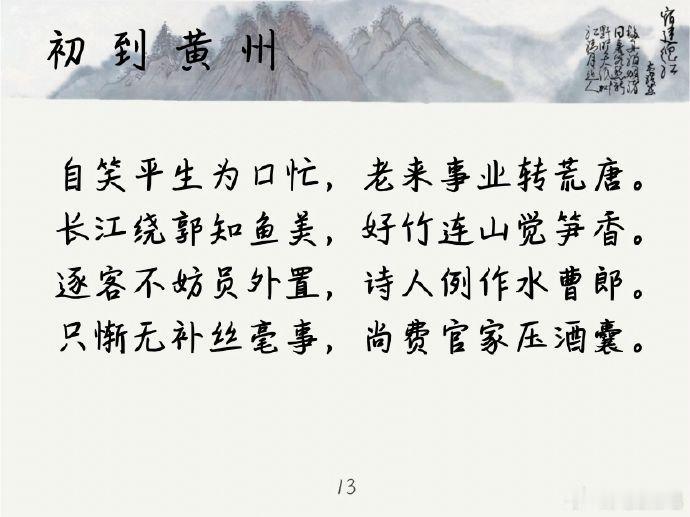 初到黄州
宿建德江
自笑平生为口忙，老来事业转荒唐。
长江绕郭知鱼美，好竹连山觉笋香。
逐客不妨员外置，诗人例作水曹郎。
只惭无补丝毫事，尚费官家压酒囊。
13